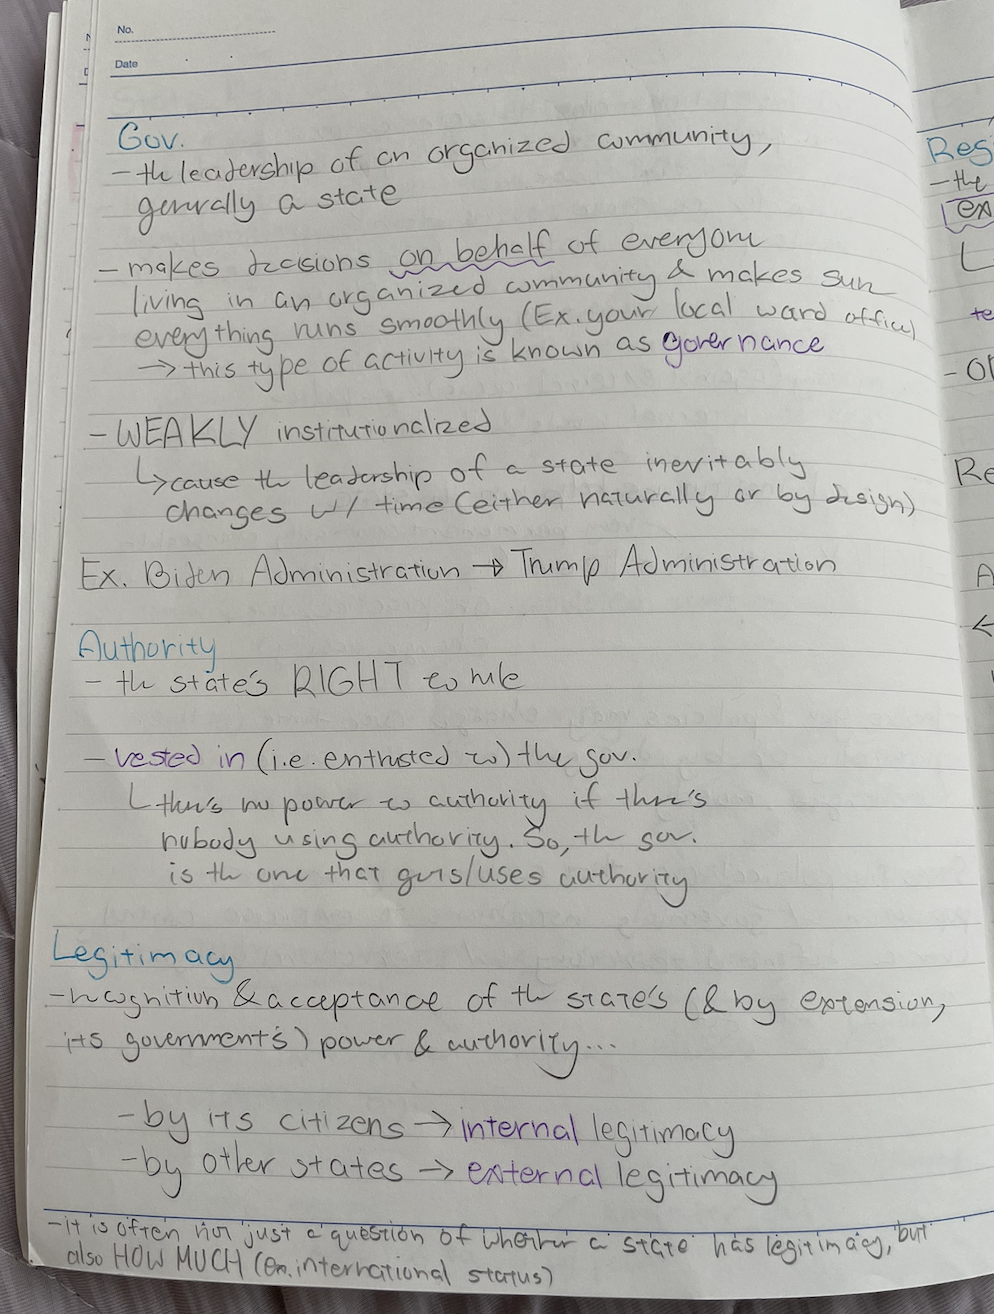 No.
Date
Gov.
- the leadership of an organized community,
generally a state
- makes decisions on behalf of everyone
living in an organized community & makes sure
everything runs smoothly (Ex. your local ward office)
→ this type of activity is known as governance
- WEAKLY institutionalized
↳ cause the leadership of a state inevitably
changes w/ time (either naturally or by design)
Ex. Biden Administration → Trump Administration
Authority
- the state's RIGHT to rule
- vested in (i.e. entrusted to) the gov.
└ there's no power to authority if there's
nobody using authority. So, the gov.
is the one that gets/uses authority
Legitimacy
- recognition & acceptance of the state's (& by extension,
its government's) power & authority...
- by its citizens → internal legitimacy
- by other states → external legitimacy
- it is often not just a question of whether a state has legitimacy, but
also HOW MUCH (en. international status)
Reg
- the
ex
te
- or
Re
A
←